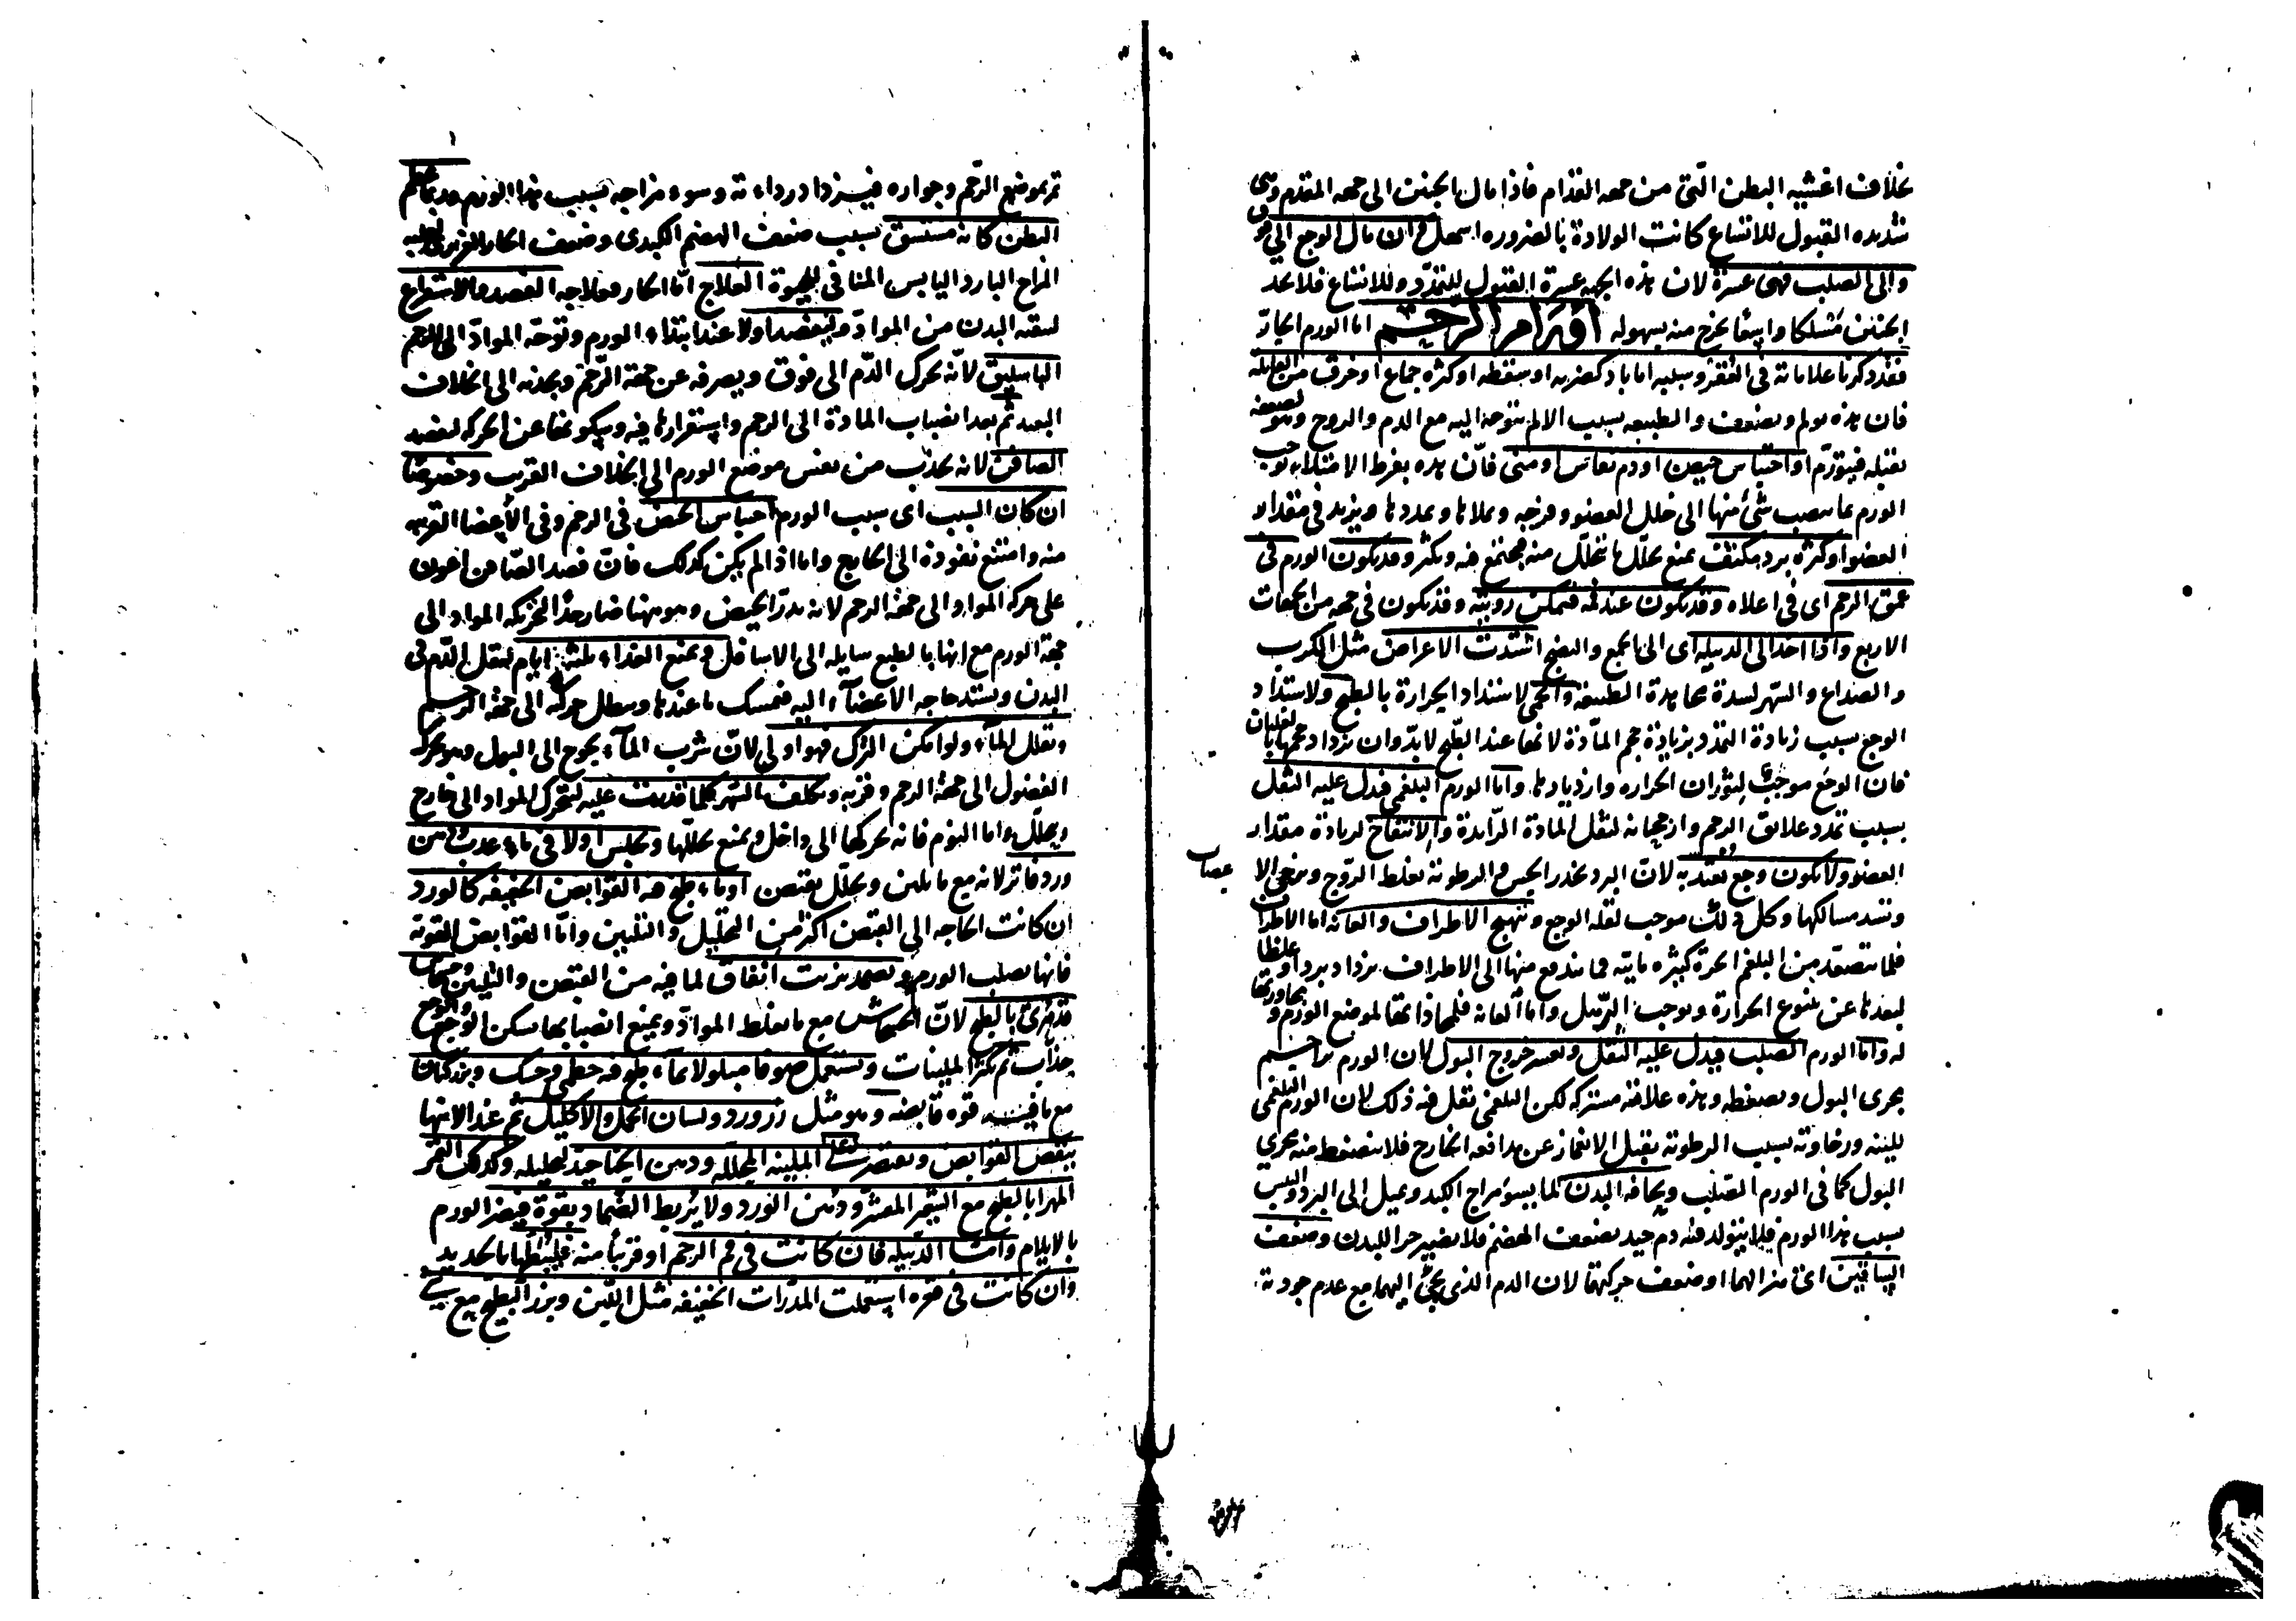 بخلاف اغشيه البطن التى من جهه القدام فاذا مال الجنين الى جهه المقدم وهى
شديده القبول للاتساع كانت الولادة بالضروره اسهل وان مال الوجع الى فوق
والى الصلب فهى عسرة لان هذه الجهه عسرة القبول للتمدد وللاتساع فلا يجد
الجنين مسلكا واسعا يخرج منه بسهوله أورام الرحم اما الورم الحارّ
فقد ذكرنا علاماته فى الفقر وسببه اما باد كضربه او سقطه او كثرة جماع او خرق من القابلة
فان هذه تولم وتضعف والطبيعه بسبب الالم تتوجه اليه مع الدم والروح وهو لضعفه
يقبله فيتورّم او احتباس حيض او دم نفاس او منى فانّ هذه بفرط الامتلاء توجب
الورم بما ينصب شئ منها الى خلل العضو وفرجه ويملاها ويمددها ويزيد فى مقدار
العضو او كثرة برد مكثف يمنع تحلّل ما يتحلّل منه فيجتمع فيه ويكثر وقد يكون الورم فى
عمق الرحم اى فى اعلاه وقد يكون عند فمه فيمكن رويته وقد يكون فى جهه من الجهات
الاربع واذا اخذ الى الدبيله اى الى الجمع والنضج اشتدت الاعراض مثل الكرب
والصداع والسهر لشدة مجاهدة الطبيعة والحمى لاشتداد الحرارة بالطبخ ولاشتداد
الوجع بسبب زيادة التمدد بزيادة حجم المادّة لانها عند الطبخ لا بدّ وان يزداد حجمها بالغليان
فان الوجع موجب لثوران الحراره وازديادها واما الورم البلغمى فيدل عليه الثقل
بسبب تمدد علايق الرحم وارجحانه لثقل المادة الزايدة والانتفاخ لزيادة مقدار
العضو ولا يكون وجع يعتد به لانّ البرد يخدر الحس والرطوبة تغلظ الروح وترخى الا
عصاب
وتسد مسالكها وكل ذلك موجب لقلة الوجع وتهيج الاطراف والعانه اما الاطراف
فلما يتصعّد من البلغم ابخرة كثيره مايته فما يندفع منها الى الاطراف يزداد بردا وغلظا
لبعدها عن ينبوع الحرارة ويوجب التربّل واما العانه فلمحاذاتها لموضع الورم ومجاورتها
له واما الورم الصلب فيدل عليه الثقل وتعسر خروج البول لان الورم يزاحم
مجرى البول ويضغطه وهذه علامة مشتركه لكن البلغمى يقل فيه ذلك لان الورم البلغمى
للينه ورخاوته بسبب الرطوبة يقبل الانغماز عن مدافعه الخارج فلا ينضغط منه مجرى
البول كما فى الورم الصلب ونحافه البدن لما يسوء مزاج الكبد ويميل الى البرد واليبس
بسبب هذا الورم فلا يتولد فيه دم جيد لضعف الهضم فلا يصير جزا للبدن وضعف
الساقين اى هزالهما او ضعف حركتهما لان الدم الذى يجئ اليهما مع عدم جودته
تمر بموضع الرحم وجواره فيزداد رداءته وسوء مزاجه بسبب هذا الورم وربما عظم
البطن كانه مستسق بسبب ضعف الهضم الكبدى وضعف الحار الغريزى لغلبه
المزاج البارد اليابس المنافى للحيوة العلاج امّا الحار فعلاجه الفصد والاستفراغ
لتنقيه البدن من الموادّ وليفصد اولا عند ابتداء الورم وتوجّه الموادّ الى الرحم
الباسليق لانّه يحرك الدّم الى فوق ويصرفه عن جهة الرّحم ويجذبه الى الخلاف
البعيد ثم بعد انصباب المادة الى الرحم واستقرارها فيه وسكونها عن الحركه يفصد
الصافن لانه يجذب من نفس موضع الورم الى الخلاف القريب وخصوصا
ان كان السبب اى سبب الورم احتباس الحيض فى الرحم وفى الأعضا القريبه
منه وامتنع نفوذه الى الخارج واما اذا لم يكن كذلك فانّ فصد الصّافن اعون
على حركه المواد الى جهة الرحم لانه يدرّ الحيض وهو ههنا ضار جدّا لتحريكه المواد الى
جهة الورم مع انها بالطبع سايله الى الاسافل ويمنع الغذاء ثلثة ايام ليقل الدّم فى
البدن ويشتد حاجه الاعضآء اليه فيمسك ما عندها ويبطل حركته الى جهة الرحم
وتقليل المآء ولو امكن الترك فهو اولى لانّ شرب المآء يحوج الى البول وهو يحرك
الفضول الى جهة الرحم وقربه ويكلف السهر كلما قدرت عليه ليتحرك المواد الى خارج
ويحلّل واما النوم فانه يحركها الى داخل ويمنع تحلّلها ويجلس اولا فى ماء عذب ودهن
ورد فاتر لانه مع ما يلين ويحلّل يقبض او ماء طبخ فيه القوابض الخفيفه كالورد
ان كانت الحاجه الى القبض اكثر من التحليل والتليين وامّا القوابض القويّة
فانها تصلب الورم ويضمد بزيت انفاق لما فيه من القبض والتليين وخشخاش
قد هُرّئ بالطبخ لانّ الخشخاش مع ما يغلظ الموادّ ويمنع انصبابها يسكن الوجع والوجع
جذّاب ثم يكثر المليّنات ويستعمل صوفا مبلولا بماء طبخ فيه خطمى وحسك وبزر كتان
مع ما فيه قوه قابضه وهو مثل زرورد ولسان الحمل والاكليل ثم عند الانتها
ينقص القوابض ويقتصر على الملينه المحلله ودهن الحنا جيّد لتحليله وكذلك التمر
المهرا بالطبخ مع الشعير المقشّر ودهن الورد ولا يُربط الضماد بقوة فيضر الورم
بالايلام وامّا الدّبيله فان كانت فى فم الرحم او قريبا منه فليبطّها بالحديد
وان كانت فى قعره استعملت المدرّات الخفيفه مثل اللبن وبزر البطيخ مع شئ